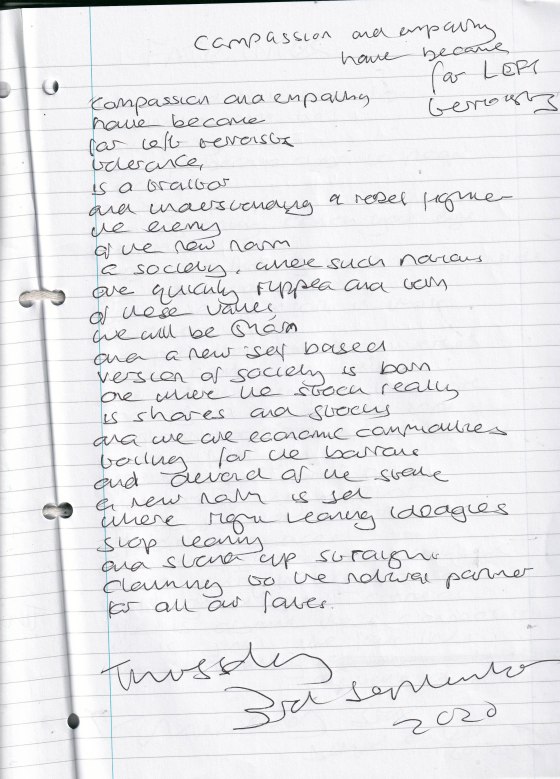 Compassion and empathy
have become
far LEFT
terrorists
Compassion and empathy
have become
far left terrorists
tolerance,
is a traitor
and understanding a rebel fighter
the enemy
of the new norm
a society, where such notions
are quickly ripped and torn
of these values,
we will be shorn
and a new self based
version of society is born
one where the stock really
is shares and stocks
and we are economic commodities
toiling for the
and devoid of the state
a new norm is set
where right leaning ideologies
stop leaning
and stand up straight
claiming to be natural partner
for all our fates.
Thursday
3rd September
2020